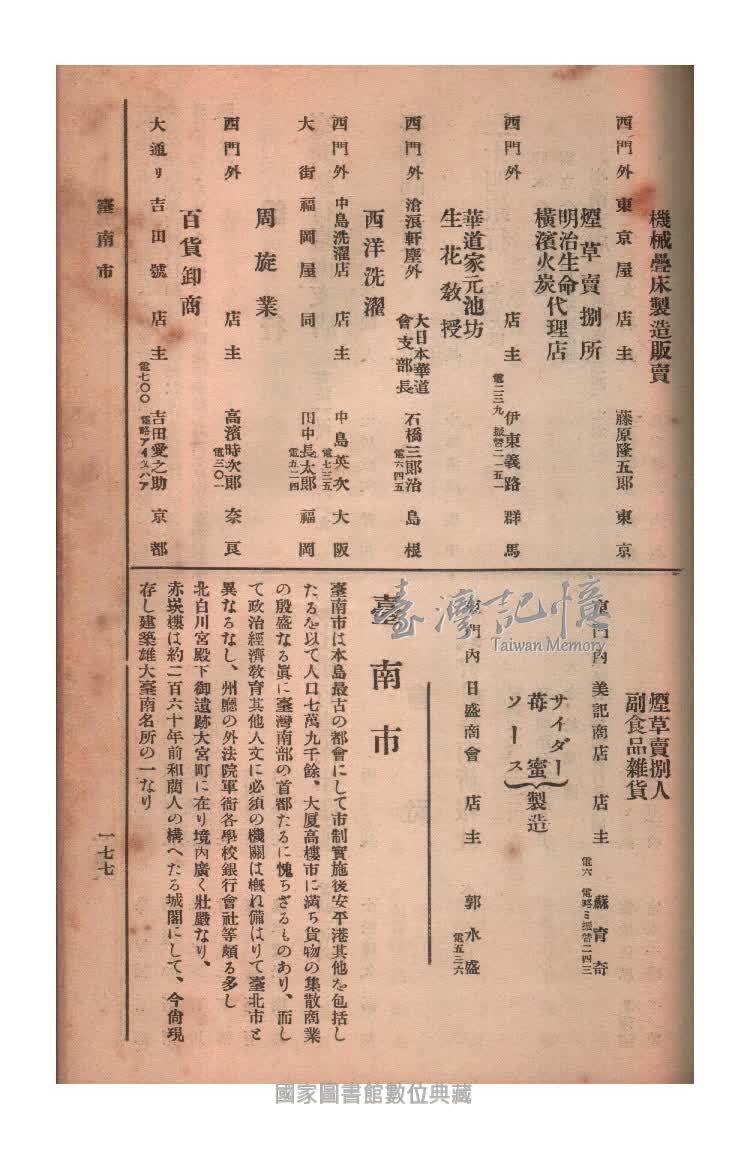 機械疊床製造販賣
西門外 東京屋 店主 藤原隆五郎 東京
煙草賣捌所
明治生命代理店
橫濱火炭
西門外 店主 伊東義路 群馬
電二三九 振替二一五一
華道家元池坊
生花教授
西門外 滄浪軒塵外 大日本華道會支部長 石橋三郎治 島根
電六四五
西洋洗濯
西門外 中島洗濯店 店主 中島英次 大阪
電七三五
大街 福岡屋 同 田中長太郎 福岡
電五二四
周旋業
西門外 店主 高濱時次郎 奈良
電三〇一
百貨卸商
大通リ 吉田號 店主 吉田愛之助 京都
電七〇〇 電略アイ
煙草賣捌人
副食品雜貨
門內 美記商店 店主 蘇育奇
電六 電略ミ 振替二四三
サイダー
苺蜜 製造
ソース
門內 日盛商會 店主 郭水盛
電五三六
臺南市
臺南市は本島最古の都會にして市制實施後安平港其他を包括し
たるを以て人口七萬九千餘、大厦高樓市に滿ち貨物の集散商業
の殷盛なる眞に臺灣南部の首都たるに愧ちざるものあり、而し
て政治經濟教育其他人文に必須の機關は概れ備はりて臺北市と
異なるなし、州廳の外法院軍衙各學校銀行會社等頗る多し
北白川宮殿下御遺跡大宮町に在り境內廣く壯嚴なり、
赤崁樓は約二百六十年前和蘭人の構へたる城閣にして、今尙現
存し建築雄大臺南名所の一なり
臺南市
一七七
臺灣記憶
Taiwan Memory
國家圖書館數位典藏